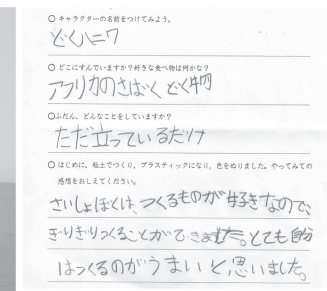 ○ キャラクターの名前をつけてみよう。
どくハニワ
○ どこにすんでいますか?好きな食べ物は何かな?
アフリカのさばく どく物
○ふだん、どんなことをしていますか?
ただ立っているだけ
○ はじめに、粘土でつくり、プラスティックになり、色をぬりました。やってみての
感想をおしえてください。
さいしょぼくは、つくるものが好きなので、
ぎりぎりつくることができました。とても自分
はつくるのがうまいと思いました。